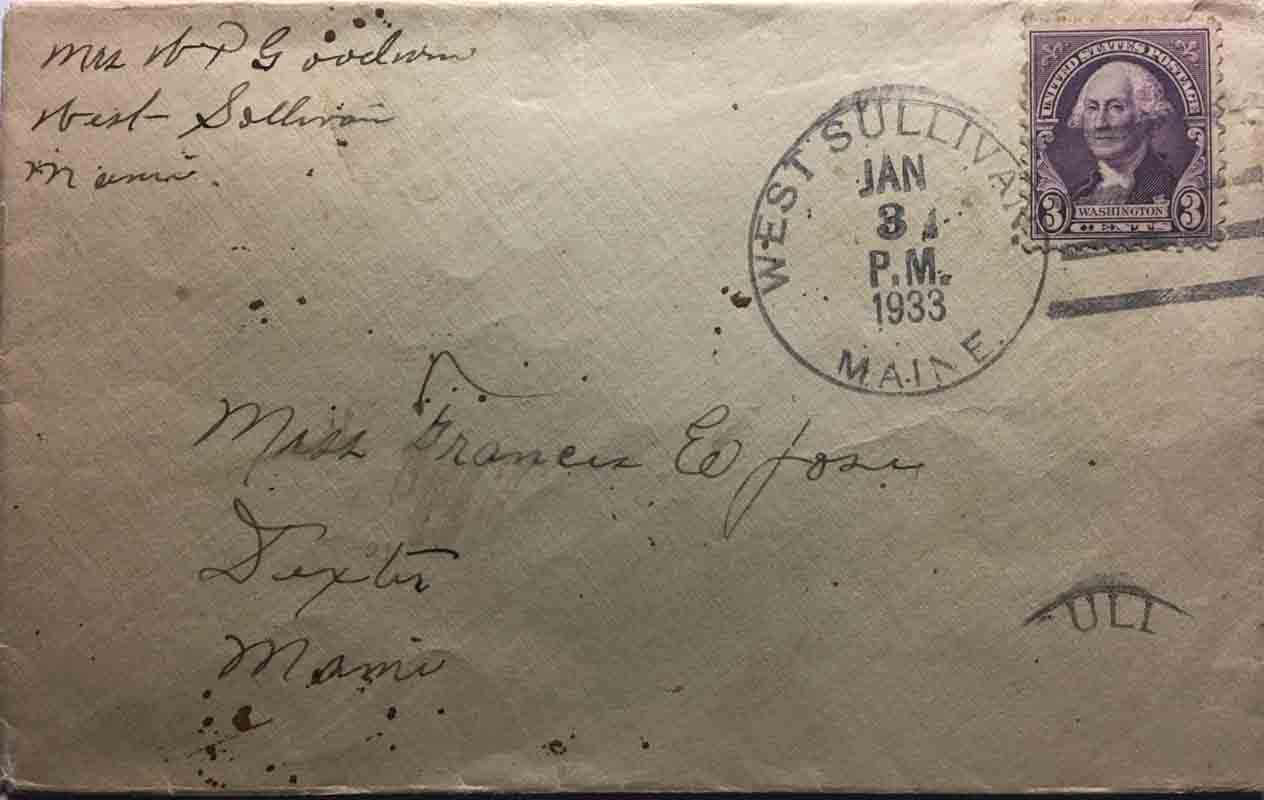 Mrs W P Goodwin
West Sullivan
Maine.
UNITED STATES POSTAGE
3 WASHINGTON 3
CENTS
WEST SULLIVAN
JAN
31
P.M.
1933
MAINE.
Miss Frances E Jose
Dexter
Maine
ULI